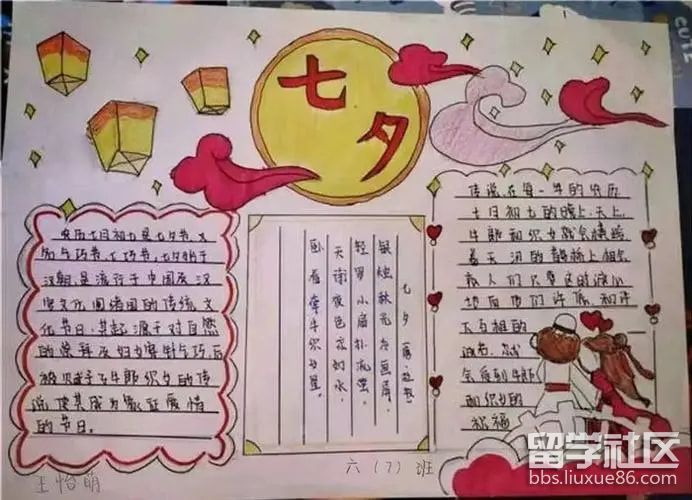 七夕
农历七月初七是七夕节,又
名乞巧节、七巧节,七夕始于
汉朝,是流行于中国及汉
字文化圈诸国的传统文
化节日,其起源于对自然
的崇拜及妇女穿针乞巧,后
被赋予了牛郎织女的传
说使其成为象征爱情
的节日。
七夕 唐·杜牧
银烛秋光冷画屏,
轻罗小扇扑流萤。
天街夜色凉如水,
卧看牵牛织女星。
传说在每一年的农历
七月初七的晚上,天上
牛郎和织女就会横跨
着天河的鹊桥上相会
故人们只要这时诚心
地向他们许愿,和许
下互相的
诺言,
会受到牛郎
和织女的
祝福
王怡萌
六(7)班
留学社区
bbs.liuxue86.com